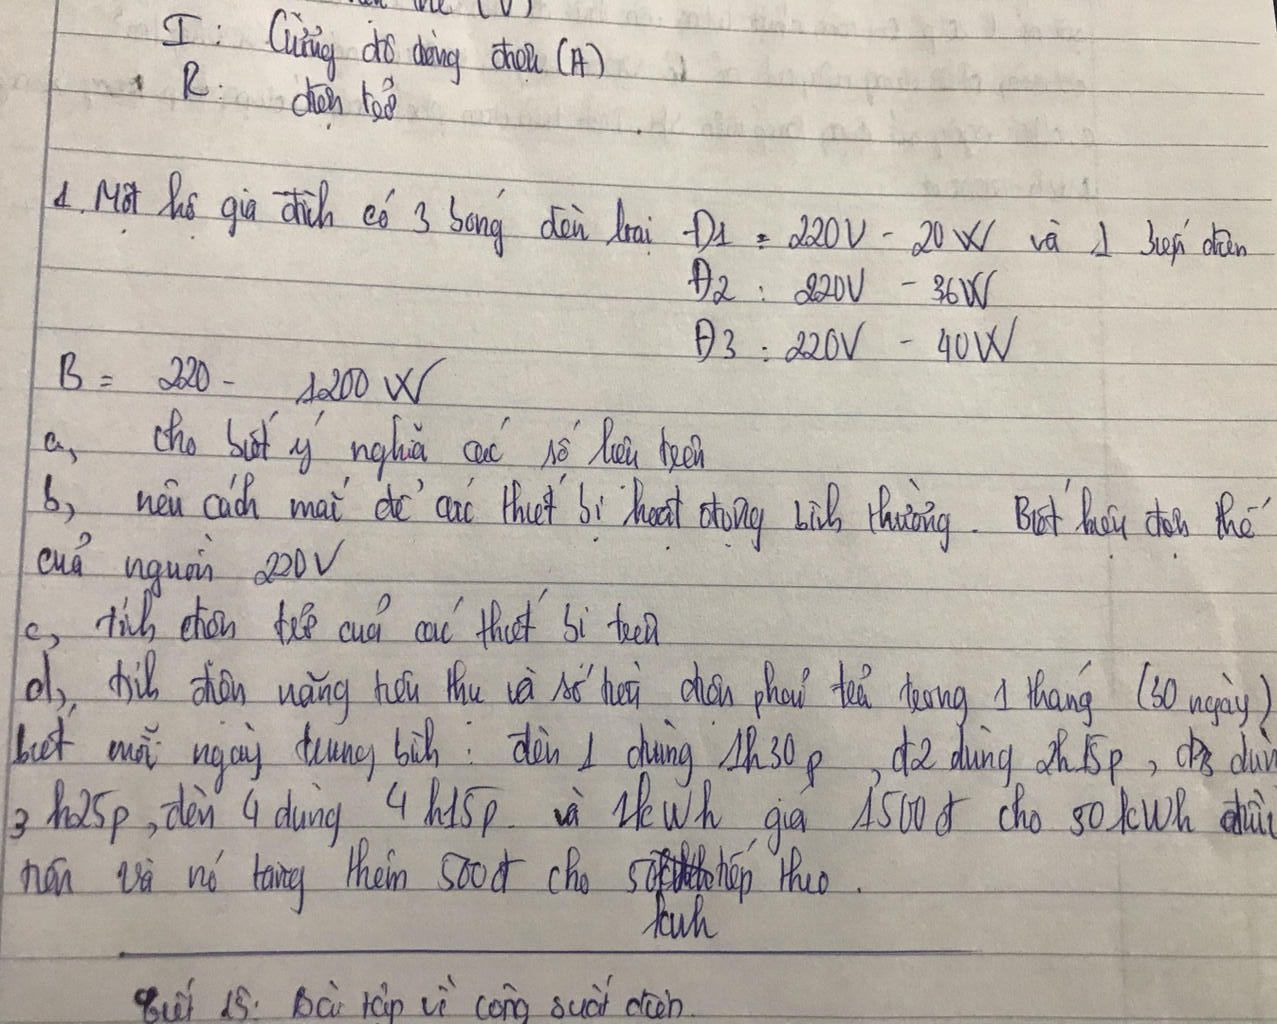 I: Cường độ dòng điện (A)
R: điện trở
1. Một hộ gia đình có 3 bóng đèn loại Đ1 = 220V - 20W và 1 bếp điện
Đ2 : 220V - 36W
Đ3 : 220V - 40W
B = 220 - 1200W
a, cho biết ý nghĩa các số liệu trên
b, nêu cách mắc để các thiết bị hoạt động bình thường. Biết hiệu điện thế
của nguồn 220V
c, tính điện trở của các thiết bị trên
d, tính điện năng tiêu thụ và số tiền điện phải trả trong 1 tháng (30 ngày)
biết mỗi ngày trung bình : đèn 1 dùng 1h30p, đ2 dùng 2h15p, đ3 dùn
3h25p, đèn 4 dùng 4h15p và 1kWh giá 1500đ cho 50kWh đầu
tiên và nó tăng thêm 500đ cho 50 tiếp theo.
kwh
Tiết 15: Bài tập về công suất điện.